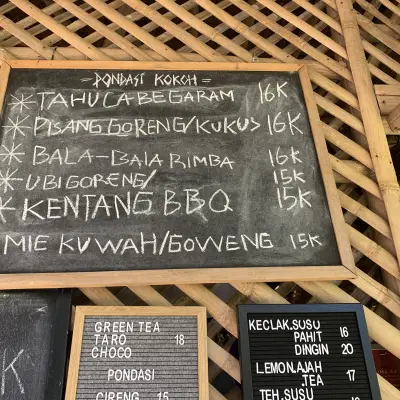 = PONDASI KOKOH =
* TAHU CABE GARAM 16K
* PISANG GORENG/KUKUS 16K
* BALA-BALA RIMBA 16K
* UBI GORENG/ 15K
* KENTANG BBQ 15K
MIE KUWAH/GOWENG 15K
GREEN TEA
TARO 18
CHOCO
PONDASI
CIRENG 15
KECLAK.SUSU
PAHIT 16
DINGIN 20
LEMON.AJAH
.TEA 17
TEH.SUSU
K